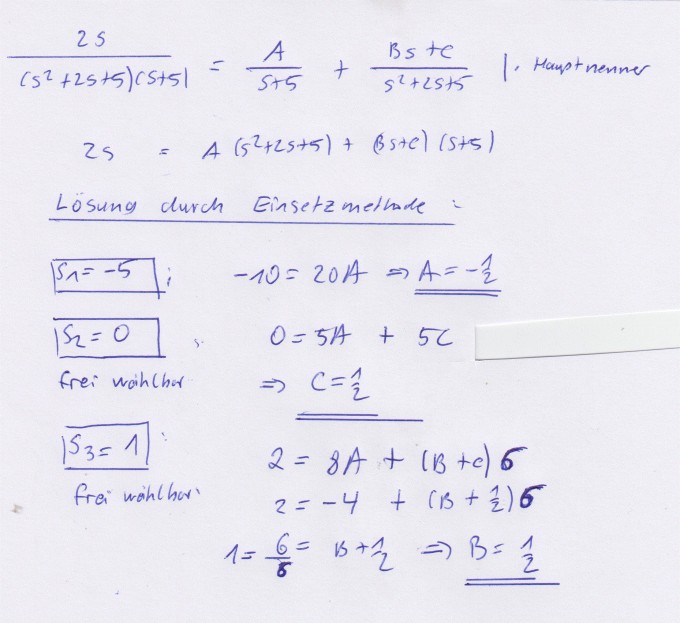 2s / (s²+2s+5)(s+5) = A / s+5 + Bs+C / s²+2s+5 | · Hauptnenner
2s = A (s²+2s+5) + (Bs+C) (s+5)
Lösung durch Einsetzmethode :
s1 = -5 ; -10 = 20A => A = -1/2
s2 = 0 0 = 5A + 5C
frei wählbar => C = 1/2
s3 = 1 : 2 = 8A + (B + C) 6
frei wählbar 2 = -4 + (B + 1/2) 6
1 = 6/6 = B + 1/2 => B = 1/2